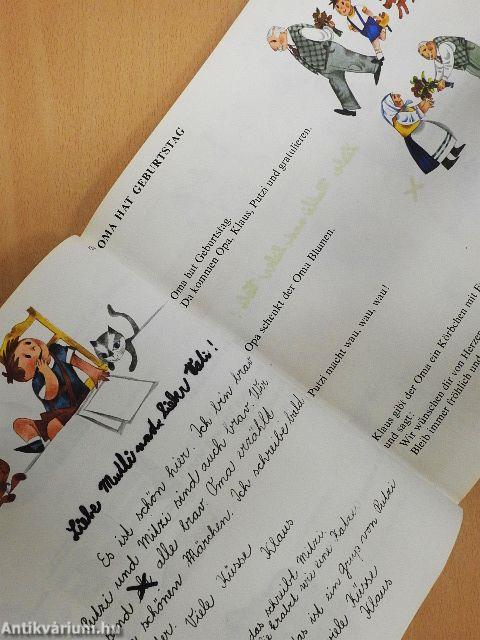 OMA HAT GEBURTSTAG
Oma hat Geburtstag.
Da kommen Opa, Klaus, Putzi und gratulieren.
Opa schenkt der Oma Blumen.
Putzi macht wau, wau, wau!
Klaus gibt der Oma ein Körbchen mit
und sagt:
Wir wünschen dir von Herzen
Bleib immer fröhlich und
Liebe Mutti und lieber Vati!
Es ist schön hier. Ich bin brav
Putzi und Mitzi sind auch brav. Wir
sind alle brav. Oma erzählt
schönen Märchen. Ich schreibe bald
Viele Küsse Klaus
das schreibt Mitzi.
wie eine Katze.
das ist ein Gruß von Putzi
viele Küsse
Klaus
Antikvárium.hu